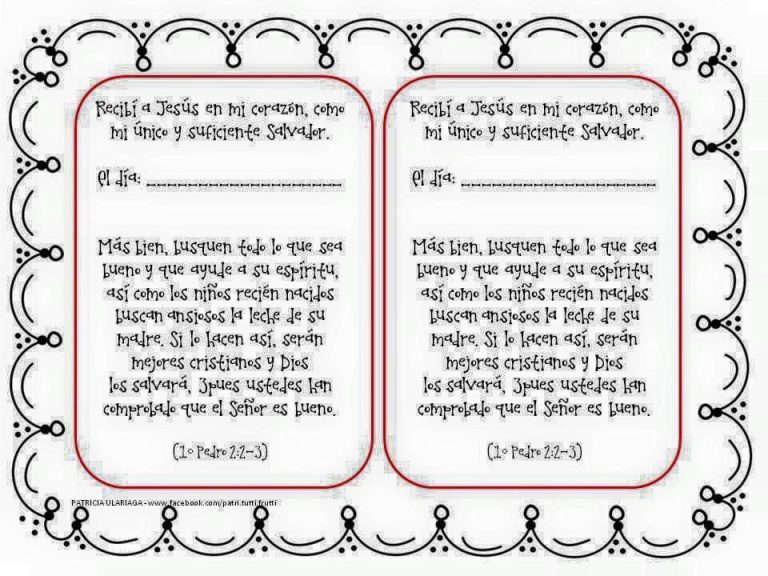 Recibí a Jesús en mi corazón, como
mi único y suficiente Salvador.
el día: ___________________
Más bien, busquen todo lo que sea
bueno y que ayude a su espíritu,
así como los niños recién nacidos
buscan ansiosos la leche de su
madre. Si lo hacen así, serán
mejores cristianos y Dios
los salvará, 3pues ustedes han
comprobado que el Señor es bueno.
(1º Pedro 2:2-3)
Recibí a Jesús en mi corazón, como
mi único y suficiente Salvador.
el día: ___________________
Más bien, busquen todo lo que sea
bueno y que ayude a su espíritu,
así como los niños recién nacidos
buscan ansiosos la leche de su
madre. Si lo hacen así, serán
mejores cristianos y Dios
los salvará, 3pues ustedes han
comprobado que el Señor es bueno.
(1º Pedro 2:2-3)
PATRICIA ULARIAGA - www.facebook.com/patri.tutti.frutti